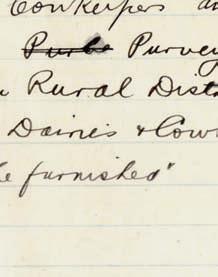 Cowkeepers an
Purbe Purvey
Rural Dist
Dairies & Cow
be furnished"